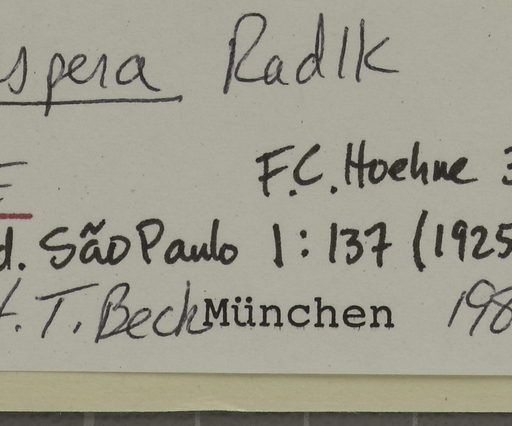 spera Radlk
F.C. Hoehne 3
d. São Paulo 1: 137 (1925
. T. Beck München 198